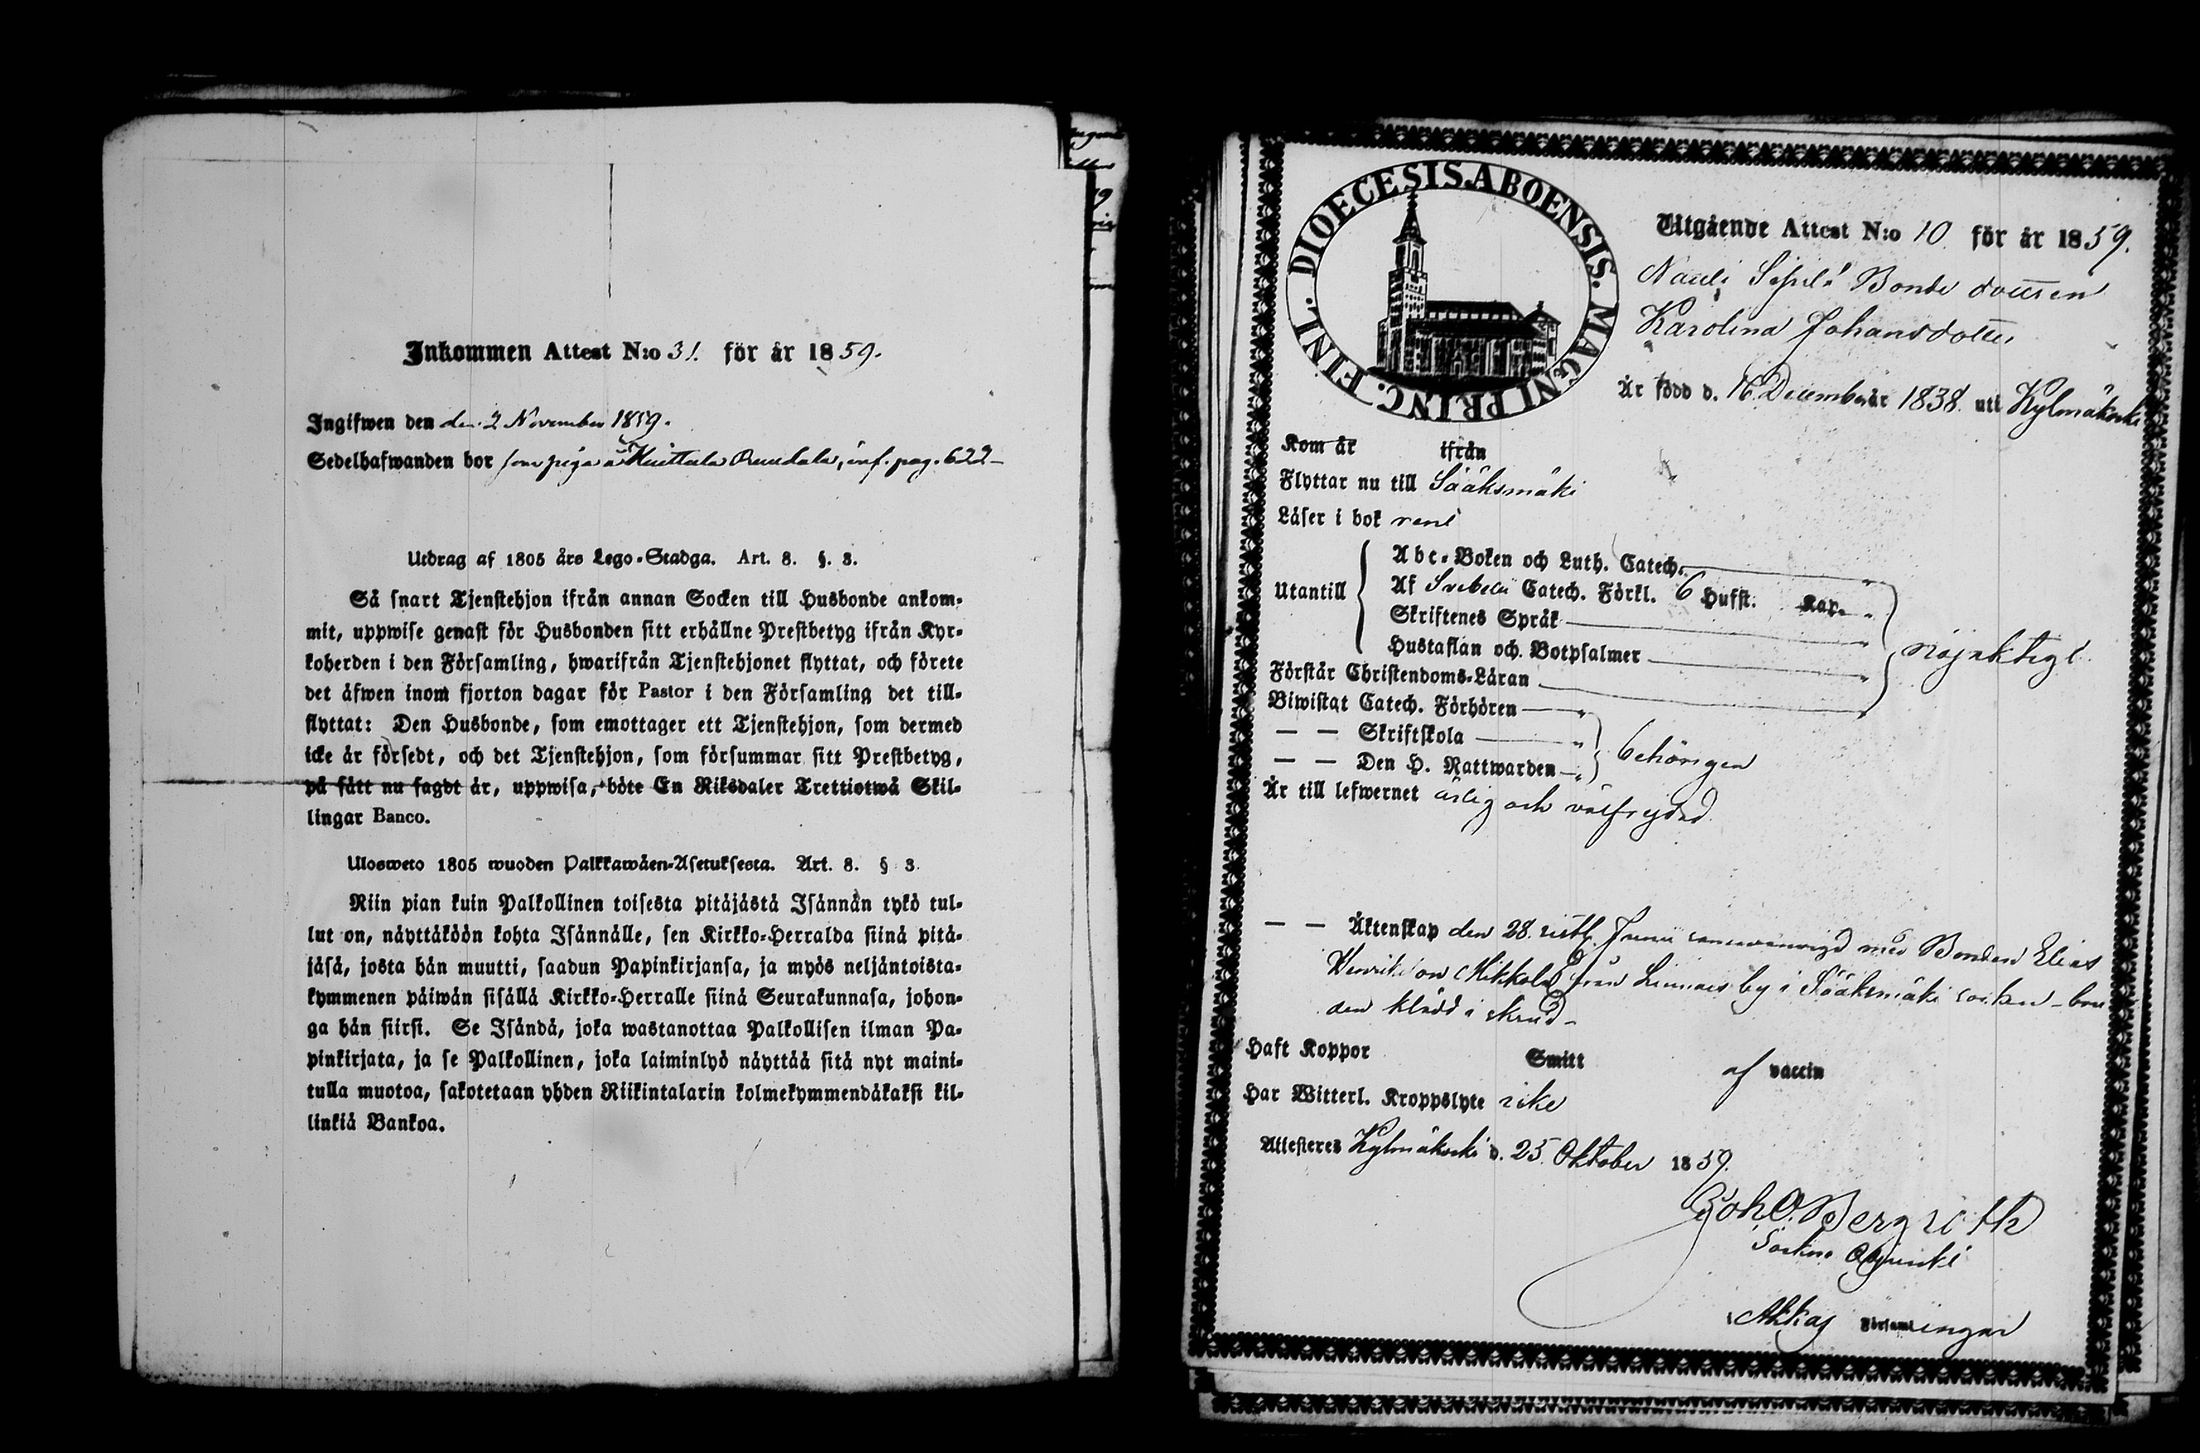 Inkommen Attest N:o 31. för år 1859.
Ingifwen den den 2 November 1859.
Sedelhafwanden bor som piga å Huittula inf. pag. 622
Utdrag af 1805 års Lego-Stadga. Art. 8. §. 3.
Så snart Tjenstehjon ifrån annan Socken till Husbonde ankom-
mit, uppwise genast för Husbonden sitt erhållne Prestbetyg ifrån Kyr-
koherden i den Församling, hwarifrån Tjenstehjonet flyttat, och förete
det äfwen inom fjorton dagar för Pastor i den Församling det till-
flyttat: Den Husbonde, som emottager ett Tjenstehjon, som dermed
icke är försedt, och det Tjenstehjon, som försummar sitt Prestbetyg,
på sätt nu sagdt är, uppwisa, böte En Riksdaler Trettiotwå Skil-
lingar Banco.
Ulosweto 1805 wuoden Palkkawäen-Asetuksesta. Art. 8. § 3.
Niin pian kuin Palkollinen toisesta pitäjästä Isännän tykö tul-
lut on, näyttäköön kohta Isännälle, sen Kirkko-Herralda siinä pitä-
jäsä, josta hän muutti, saadun Papinkirjansa, ja myös neljäntoista-
kymmenen päiwän sisällä Kirkko-Herralle siinä Seurakunnasa, johon-
ga hän siirsi. Se Isändä, joka wastanottaa Palkollisen ilman Pa-
pinkirjata, ja se Palkollinen, joka laiminlyö näyttää sitä nyt maini-
tulla muotoa, sakotetaan yhden Riikintalarin kolmekymmendäkaksi kil-
linkiä Bankoa.
DIOECESIS ABOENSIS. MAGNI PRINC. FINL.
Utgående Attest N:o 10 för år 1859.
Bonde dottren
Karolina Johansdotter
Är född d. 16 December år 1838. uti Kylmäkoski
Kom år ifrån
Flyttar nu till Sääksmäki
Läser i bok rent
Utantill
Abc-Boken och Luth. Catech.
Af Svebelii Catech. Förkl. 6 Hufst. Kap.
Skriftenes Språk
Hustaflan och Botpsalmer
nöjaktigt
Förstår Christendoms-Läran
Biwistat Catech. Förhören
— — Skriftskola
— — Den H. Nattwarden
behörigen
Är till lefwernet ärlig och välfrejdad
— — Äktenskap den 28. sistl. Junii sammanvigd med Bonden Elias
Henriksson Mikkola från by i Sääksmäki socken - bru
den klädd i skrud -
Haft Koppor Smitt af vaccin
Har Witterl. Kroppslyte icke
Attesteres Kylmäkoski d. 25 Oktober 1859.
Joh O. Bergroth
Sockne Adjunkt
i Akkas Församlingar